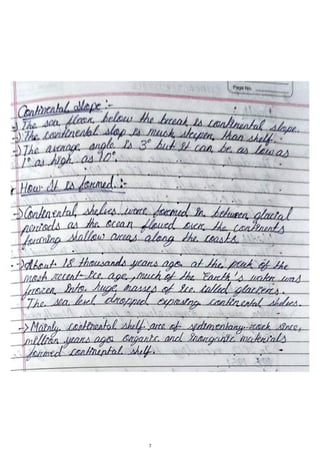 Page No.
Continental slope :-
-> The sea floor below the break is continental slope.
-> The continental slop is much steeper than shelf.
-> The average angle is 3° but it can be as low as
1° as high as 10°.
How it is formed :-
-> Continental shelves were formed in between glacial
periods as the ocean flowed over the continents
forming shallow areas along the coasts.
-> About 18 thousands years ago at the peak of the
most recent ice age, much of the Earth's water was
frozen into huge masses of ice called glaciers.
The sea level dropped exposing continental shelves.
-> Mainly continental shelf are of sedimentary rock since,
million years ago organic and inorganic materials
formed continental shelf.
7